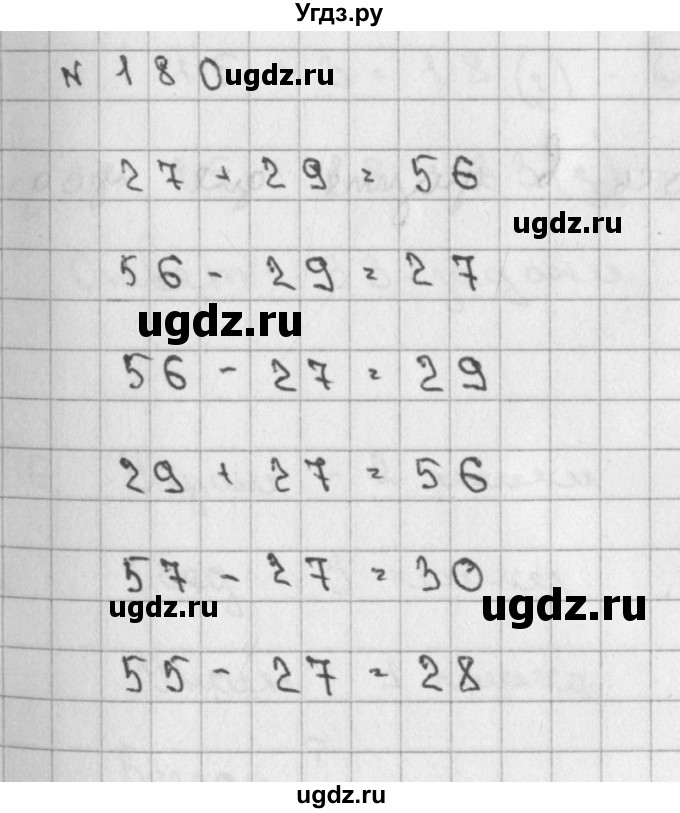 Угдз.ру
N 180
ugdz.ru
27 + 29 = 56
ugdz.ru
56 - 29 = 27
ugdz.ru
56 - 27 = 29
29 + 27 = 56
57 - 27 = 30
ugdz.ru
ugdz.ru
55 - 27 = 28
ugdz.ru